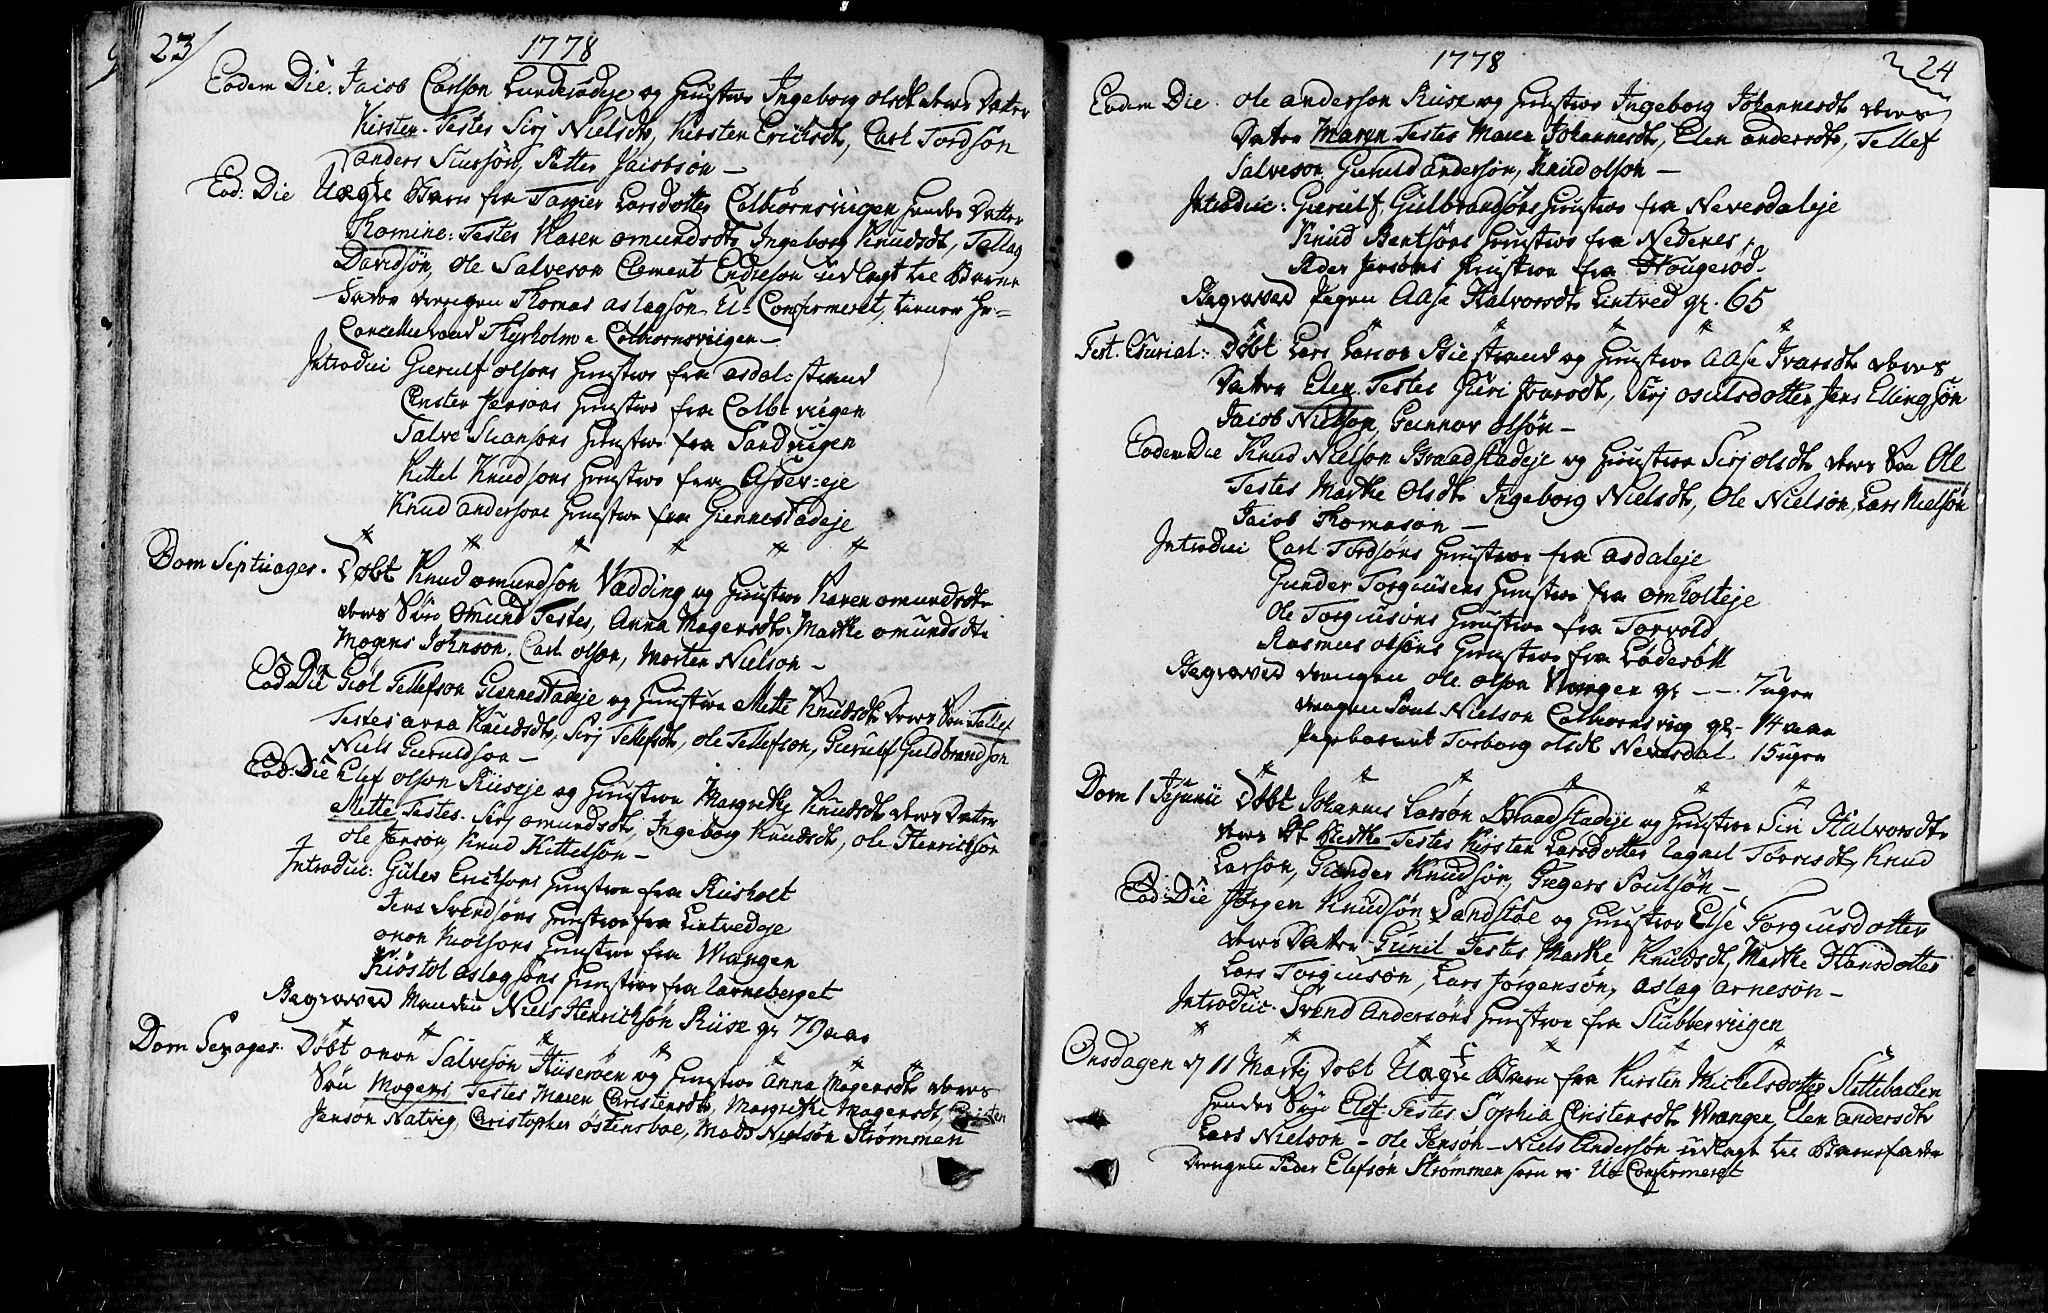 23/
1778
Eodem Die. Jacob Carlson Lunderødeje og Hustroe Ingeborg olsdt deres Datter
Kirsten. Testes Sirj Nielsdt, Kirsten Ericksdt, Carl Tordsøn
anders, Petter Jacobsøn –
Eod: Die Uægte Barn fra Tarjer Larsdotter Colbiornsviigen hendes Datter
Thomine: Testes Karen omundsdt, Ingeborg Knudsdt, Tellag
Davidsøn, Ole Salveson Clement Endreson udlagt til Barne
fader drengen Thomas aslagsøn U-Confirmeret, tiener Hr=
Cancellieraad Thyrholm a Colbiornsviigen –
Introduc: Gierulf olsons Hustroe fra asdal-strand
Censten Jensons Hustroe fra Colb: viigen
Salve Hansons Hustroe fra Sandviigen
Kittel Knudsons Hustroe fra Asser:eje
Knud andersons Hustroe fra Giennestadeje
Dom Septuages. Døbt Knud omundson Vædding og Hustroe Karen omundsdt
deres Søn omund Testes, Anna Mogensdt, Marthe omundsdt
Mogens Johnson, Carl olson, Morten Nielson –
Eod: Die Giøl Tellefson Giennestadeje og Hustroe Mette Knudsdt deres Søn Tellef
Testes anna Knudsdt, Sirj Tellefsdt, ole Tellefson, Gierulf Guldbrandson
Niels Gieruldson –
Eod: Die Elef olson Riiseje og Hustroe Margrethe Knudsdt deres Datter
Mette Testes. Sirj omundsdt, Ingeborg Knudsdt, ole Henrickson
ole Jenson, Knud Kittelson –
Introduc: Guler Ericksons Hustroe fra Riisholt
Jens Svendsøns Hustroe fra Lintvedeje
onon Hustroe fra Wrangen
Kiøstol aslagsøns Hustroe fra
Begraved Manden Niels Henricksøn Riise gl 79 aar
Dom Sexages. Døbt onon Salvesøn Hiiserøen og Hustroe Anna Mogensdt deres
Søn Mogens Testes Maren Christensdt, Margrethe Mogensdt, Christen
Jensøn Natvig, Christopher østensboe, Mads Nielsøn Strømmen
1778
24
Eodem Die. ole anderson Riise og Hustroe Ingeborg Johannesdt deres
Datter Maren Testes Maren Johannesdt, Elen andersdt, Tellef
Salveson, Gieruld andersøn, Knud olson –
Introduc: Gierulf Gulbrandsøns Hustroe fra Neversdaleje
Knud Bentsøns Hustroe fra Nedenes,
Peder Jensøns Hustroe fra Hougerød.
Begraved Pigen Aase Halvorsdt Lintved gl. 65
Fest. Esurial: Døbt Lars Larson Biestrand og Hustroe Aase Ivarsdt deres
Datter Elen. Testes Guri Ivarsdt, Sirj osulsdotter Jens Ellingsøn
Jacob Nielson, Gunnar olsøn –
Eodem Die Knud Nielson Braadstadeje og Hustroe Sirj olsdt deres Søn Ole
Testes Marthe Olsdt, Ingeborg Nielsdt, Ole Nielson, Lars Nielsøn
Jacob Thomasøn –
Introduc Carl Tordsøns Hustroe fra asdaleje
Gunder Torgiusens Hustroe fra omholteje
ole Torgiusøns Hustroe fra Torvold
Rasmus olsøns Hustroe fra Lødesøll
Begraved drengen ole olson Wrangen gl – – 7 uger
drengen Poul Nielson Colbiornsviig gl – 14 aar
Pigebarnet Torborg olsdt Neversdal 15 uger
Dom 1 Jejunii Døbt Johannes Larsøn Braadstadeje og Hustroe Siri Halvorsdt
deres Dt Berthe Testes Kirsten Larsdotter Torrisdt, Knud
Larsøn, Gunder Knudsøn, Gregers Poulsøn –
Eod: Die Jørgen Knudsøn Sandstøe og Hustroe Else Torgiusdotter
deres Datter Gunil Testes Marthe Knudsdt, Marthe Hansdotter
Lars Torgiusøn, Lars Jørgensøn, aslag arneson –
Introduc: Svend Andersøns Hustroe fra Stubberviigen
Onsdagen d 11 Martij Døbt Uægte Barn fra Kirsten Michelsdotter Slettebachen
hendes Søn Elef Testes Sophia Cristensdt Wrangen, Elen andersdt
Lars Nielson – ole Jensøn – Niels Andersøn udlagt til Barnefader
Drengen Peder Elefsøn Strømmen som er U-Confirmeret